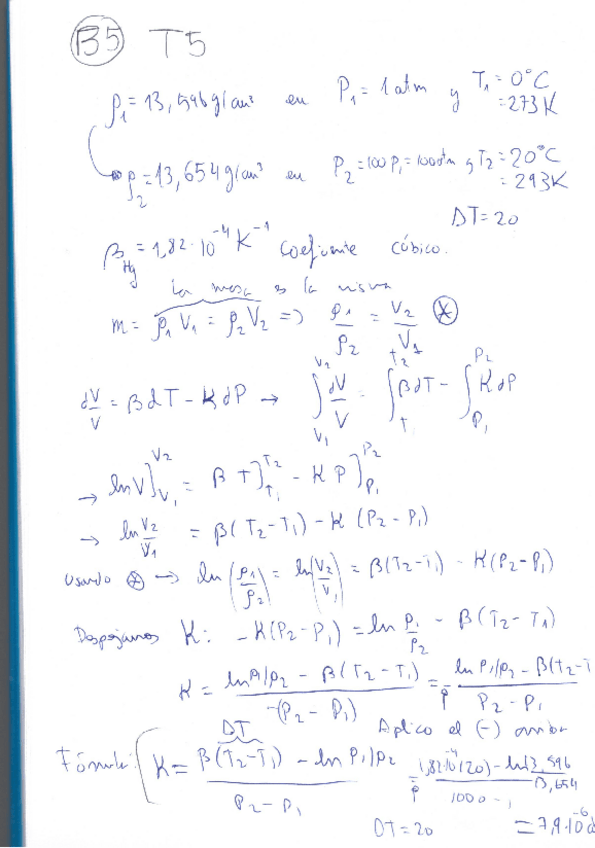 B5 T5
ρ₁ = 13,596 g/cm³ en P₁ = 1 atm y T₁ = 0°C = 273 K
ρ₂ = 13,654 g/cm³ en P₂ = 100 P₁ = 1000 atm y T₂ = 20°C = 293K
DT = 20
β_Hg = 1,82·10⁻⁴ K⁻¹ Coefiente cúbico.
La masa es la misma
m = ρ₁ V₁ = ρ₂ V₂ => ρ₁/ρ₂ = V₂/V₁ ⊛
dV/V = β dT - K dP → ∫_{V₁}^{V₂} dV/V = ∫_{T₁}^{T₂} β dT - ∫_{P₁}^{P₂} K dP
→ ln V]_{V₁}^{V₂} = β T]_{T₁}^{T₂} - K P]_{P₁}^{P₂}
→ ln V₂/V₁ = β(T₂-T₁) - K (P₂-P₁)
Usando ⊛ → ln (ρ₁/ρ₂) = ln(V₂/V₁) = β(T₂-T₁) - K(P₂-P₁)
Despejamos K: -K(P₂-P₁) = ln ρ₁/ρ₂ - β(T₂-T₁)
K = (ln ρ₁/ρ₂ - β(T₂-T₁))/(-(P₂-P₁)) = - (ln ρ₁/ρ₂ - β(T₂-T
P₂-P₁
Aplico el (-) arriba
DT
Fórmula: K = (β(T₂-T₁) - ln ρ₁/ρ₂)/(P₂-P₁) = (1,82·10⁻⁴(20) - ln 13,596/13,654)/(1000-1
DT = 20 = 7,9·10⁻⁶